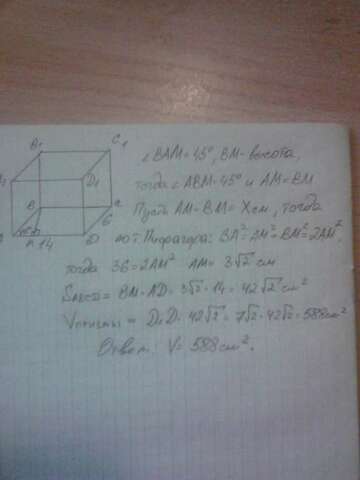 B₁ C₁
∠BAM=45°, BM-высота,
D₁
тогда ∠ABM=45° и AM=BM
B
6
Пусть AM=BM=Xсм, тогда
M 14 D
по т. Пифагора: BA²=AM²+BM²=2AM²,
тогда 36=2AM² AM=3√2 см
Sавсд=BM·AD=3√2·14=42√2 см²
Vпризмы=D₁D·42√2=7√2·42√2=588см²
Ответ: V=588см².